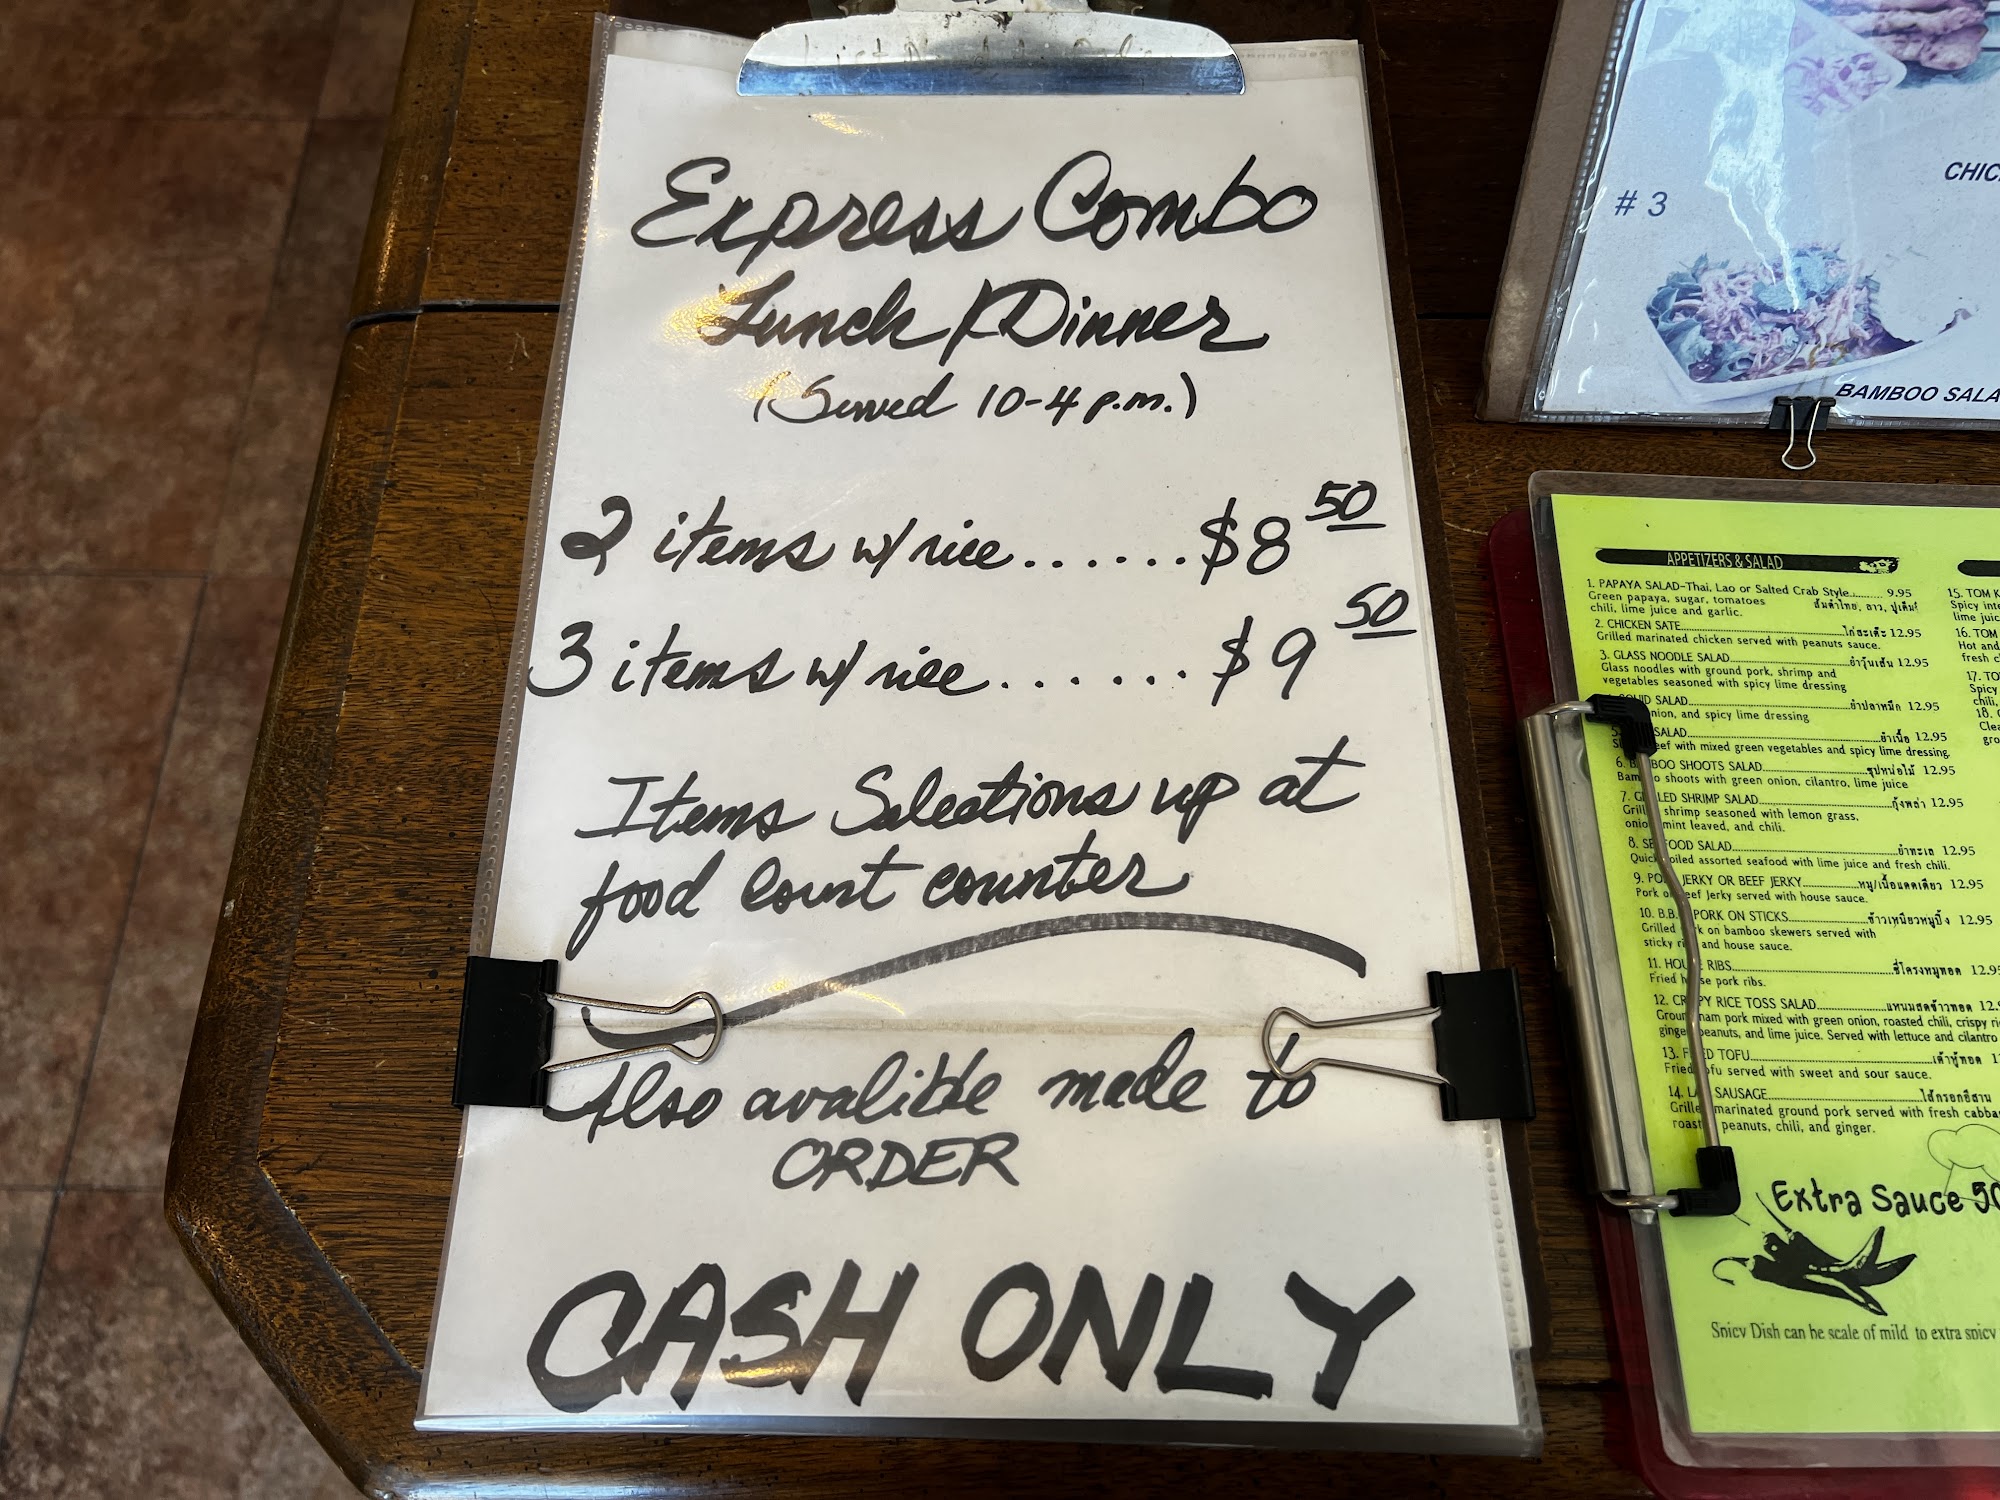 Express Combo
Lunch/Dinner
(Served 10-4 p.m.)
2 items w/ rice......$8 50
3 items w/ rice.......$9 50
Items Selections up at
food court counter
Also avalible made to
ORDER
CASH ONLY
# 3
CHIC
BAMBOO SALA
APPETIZERS & SALAD
1. PAPAYA SALAD-Thai, Lao or Salted Crab Style.......... 9.95
Green papaya, sugar, tomatoes ส้มตำไทย, ลาว, ปูเค็ม
chili, lime juice and garlic.
2. CHICKEN SATE..........ไก่สะเต๊ะ 12.95
Grilled marinated chicken served with peanuts sauce.
3. GLASS NOODLE SALAD..........ยำวุ้นเส้น 12.95
Glass noodles with ground pork, shrimp and
vegetables seasoned with spicy lime dressing
SALAD..........ยำปลาหมึก 12.95
onion, and spicy lime dressing
SALAD..........ยำเนื้อ 12.95
beef with mixed green vegetables and spicy lime dressing
6. BAMBOO SHOOTS SALAD..........ซุปหน่อไม้ 12.95
Bamboo shoots with green onion, cilantro, lime juice
7. GRILLED SHRIMP SALAD..........กุ้งพล่า 12.95
Grill shrimp seasoned with lemon grass,
onion mint leaved, and chili.
8. SEAFOOD SALAD..........ยำทะเล 12.95
Quick boiled assorted seafood with lime juice and fresh chili.
9. PORK JERKY OR BEEF JERKY..........หมู/เนื้อแดดเดียว 12.95
Pork or beef jerky served with house sauce.
10. B.B. PORK ON STICKS..........ข้าวเหนียวหมูปิ้ง 12.95
Grilled pork on bamboo skewers served with
sticky ri and house sauce.
11. HOUSE RIBS..........ซี่โครงหมูทอด 12.95
Fried house pork ribs.
12. CRISPY RICE TOSS SALAD..........แหนมสดข้าวทอด 12.
Ground ham pork mixed with green onion, roasted chili, crispy ri
ginger peanuts, and lime juice. Served with lettuce and cilantro
13. FRIED TOFU..........เต้าหู้ทอด 1
Fried tofu served with sweet and sour sauce.
14. LAO SAUSAGE..........ไส้กรอกอีสาน
Grilled marinated ground pork served with fresh cabba
roast peanuts, chili, and ginger.
15. TOM K
Spicy inte
lime juic
16. TOM
Hot and
fresh c
17. TO
Spicy
chili,
18.
Clea
gro
Extra Sauce 50
Spicy Dish can be scale of mild to extra spicy